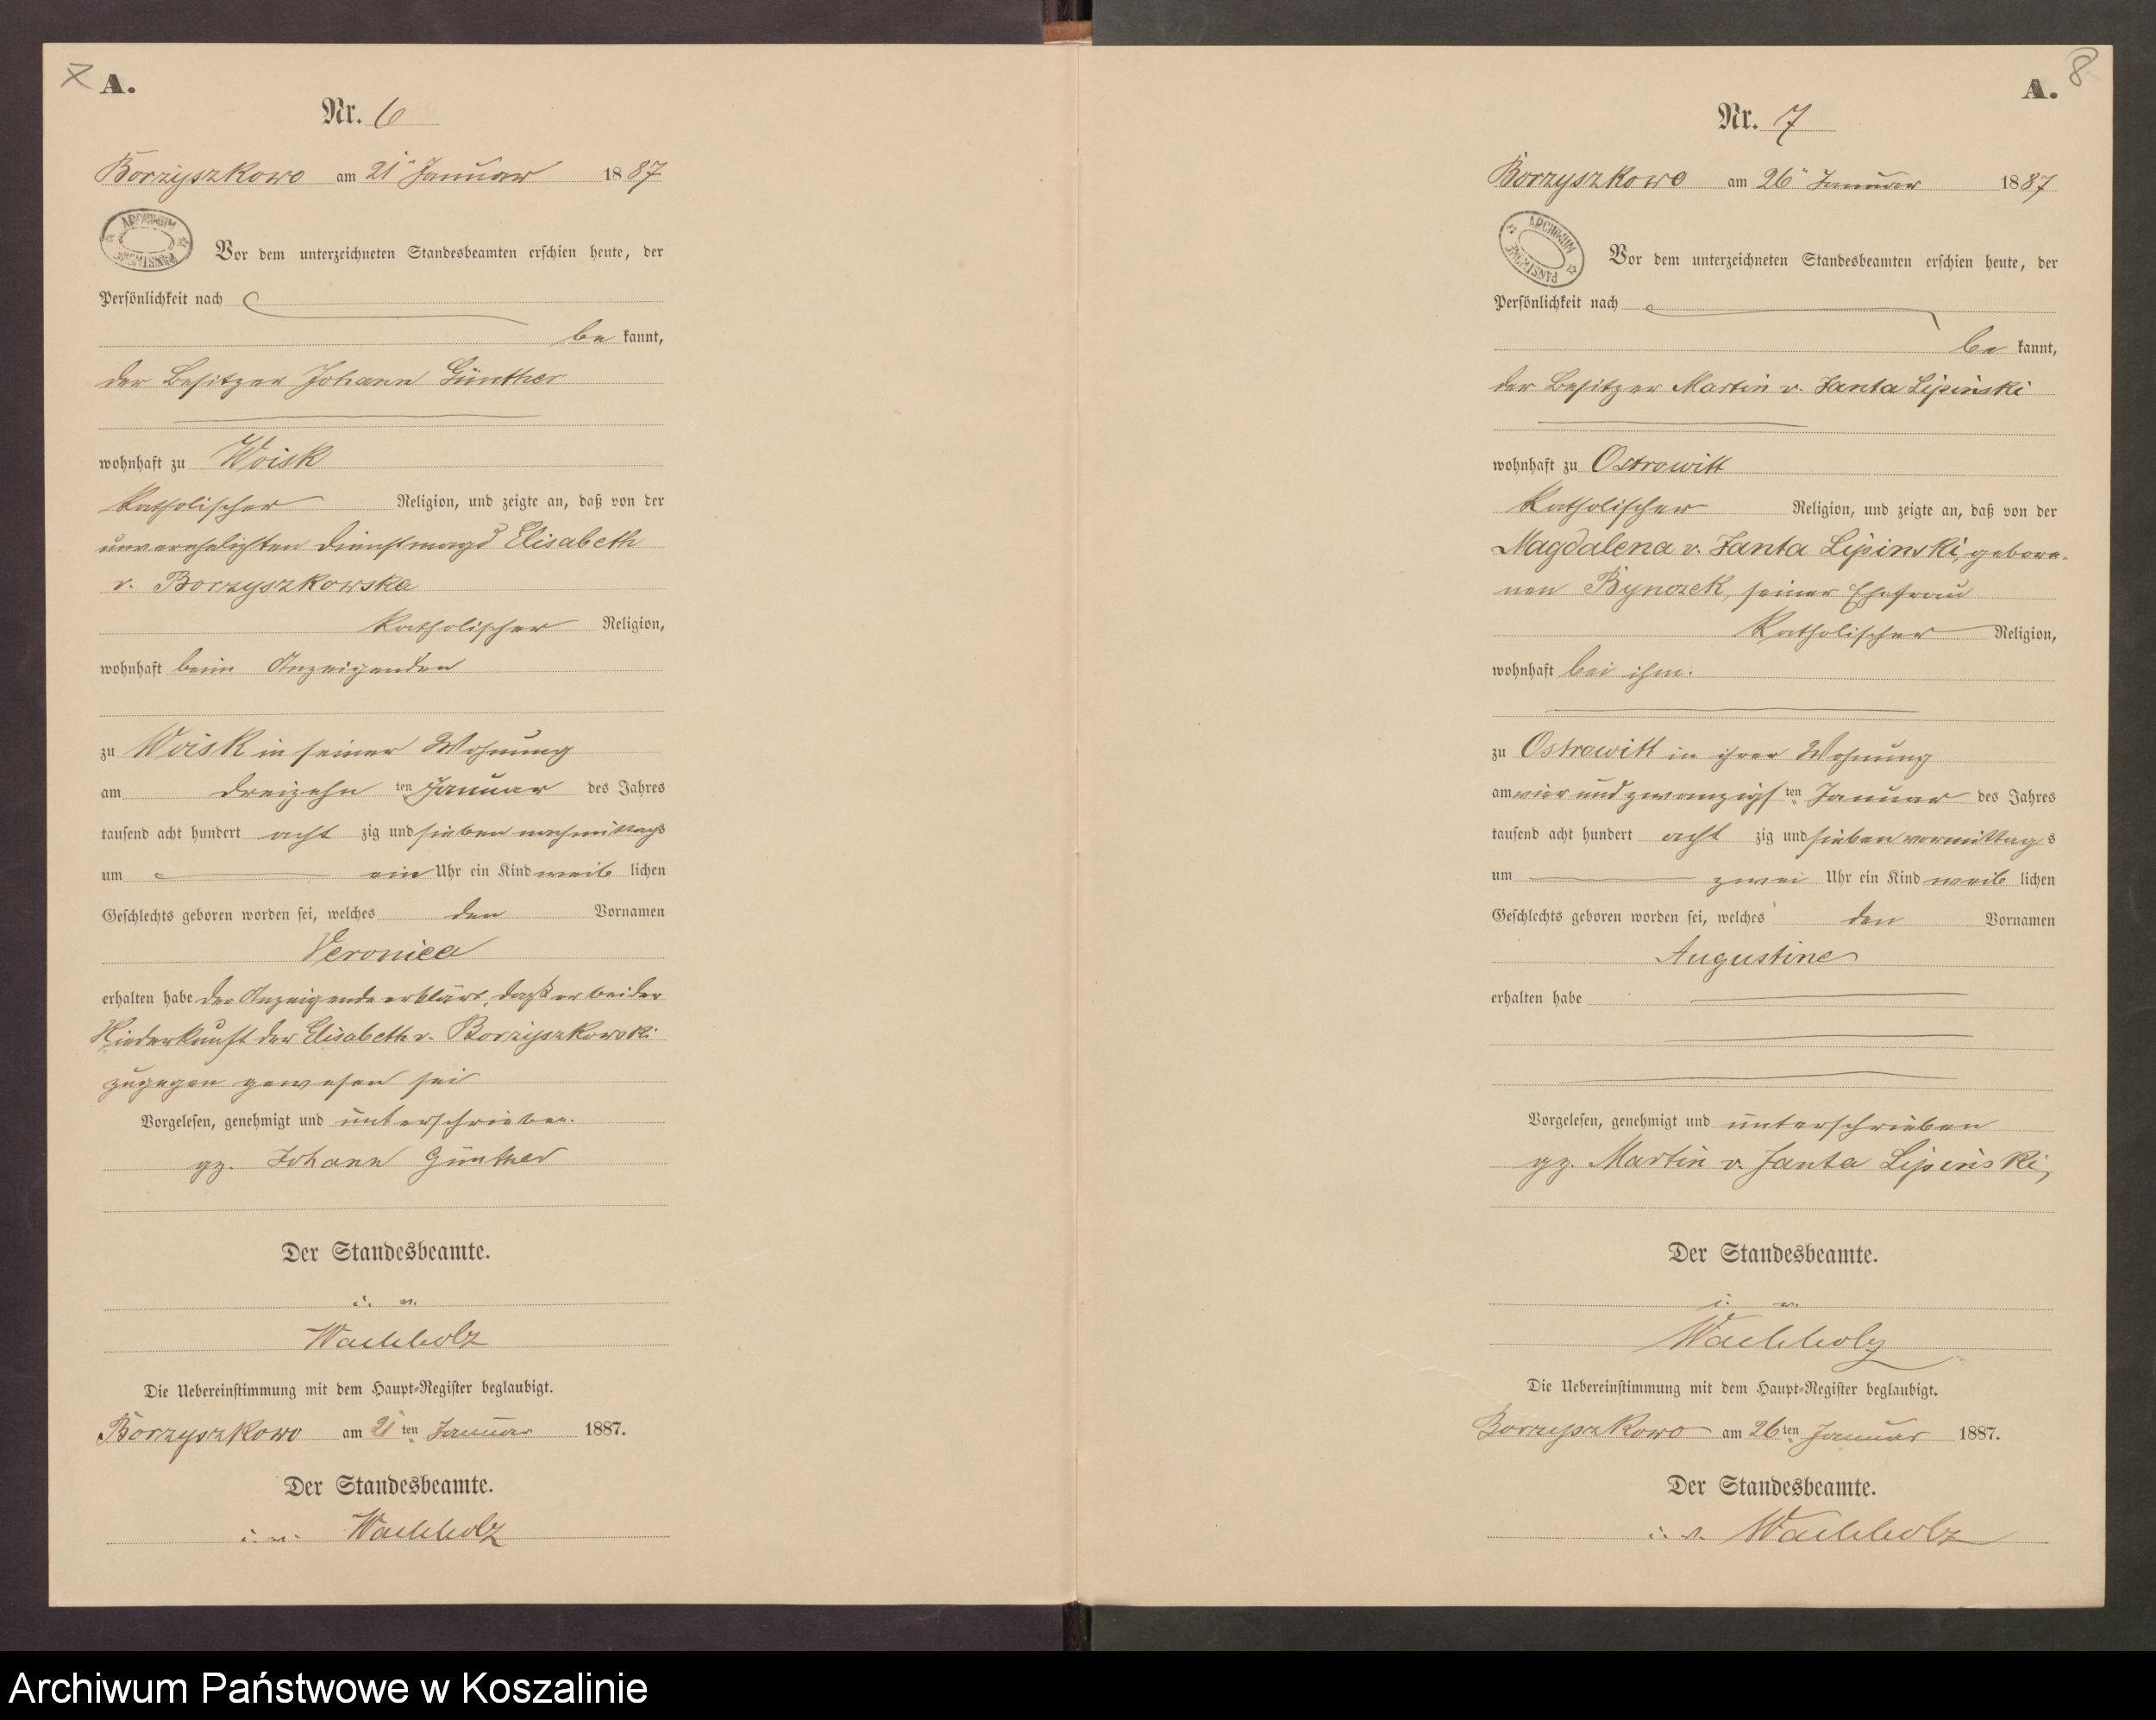 7
A.
Nr. 6
Borzyszkowo am 21ⁿ Januar 1887
ARCHIWUM PAŃSTWOWE
Vor dem unterzeichneten Standesbeamten erschien heute, der
Persönlichkeit nach
be kannt,
der Besitzer Johann Günther
wohnhaft zu Woisk
katholischer Religion, und zeigte an, daß von der
unverehelichten Dienstmagd Elisabeth
v. Borzyszkowska
katholischer Religion,
wohnhaft beim Anzeigenden
zu Woisk in seiner Wohnung
am dreizehn ten Januar des Jahres
tausend acht hundert acht zig und sieben nachmittags
um ein Uhr ein Kind weib lichen
Geschlechts geboren worden sei, welches den Vornamen
Veronica
erhalten habe der Anzeigende erklärt, daß er bei der
Niederkunft der Elisabeth v. Borzyszkowski
zugegen gewesen sei
Vorgelesen, genehmigt und unterschrieben.
gz. Johann Günther
Der Standesbeamte.
i. v.
Wachholz
Die Uebereinstimmung mit dem Haupt-Register beglaubigt.
Borzyszkowo am 21 ten Januar 1887.
Der Standesbeamte.
i. v. Wachholz
8
A.
Nr. 7
Borzyszkowo am 26ⁿ Januar 1887
ARCHIWUM PAŃSTWOWE
Vor dem unterzeichneten Standesbeamten erschien heute, der
Persönlichkeit nach
be kannt,
der Besitzer Martin v. Janta Lipinski
wohnhaft zu Ostrowitt
katholischer Religion, und zeigte an, daß von der
Magdalena v. Janta Lipinski, gebore-
nen Bynozek, seiner Ehefrau
katholischer Religion,
wohnhaft bei ihm.
zu Ostrowitt in ihrer Wohnung
am vier und zwanzigs ten Januar des Jahres
tausend acht hundert acht zig und sieben vormittag s
um zwei Uhr ein Kind weib lichen
Geschlechts geboren worden sei, welches den Vornamen
Augustine
erhalten habe
Vorgelesen, genehmigt und unterschrieben
gz. Martin v. Janta Lipinski,
Der Standesbeamte.
i. v.
Wachholz
Die Uebereinstimmung mit dem Haupt-Register beglaubigt.
Borzyszkowo am 26 ten Januar 1887.
Der Standesbeamte.
i. v. Wachholz
Archiwum Państwowe w Koszalinie